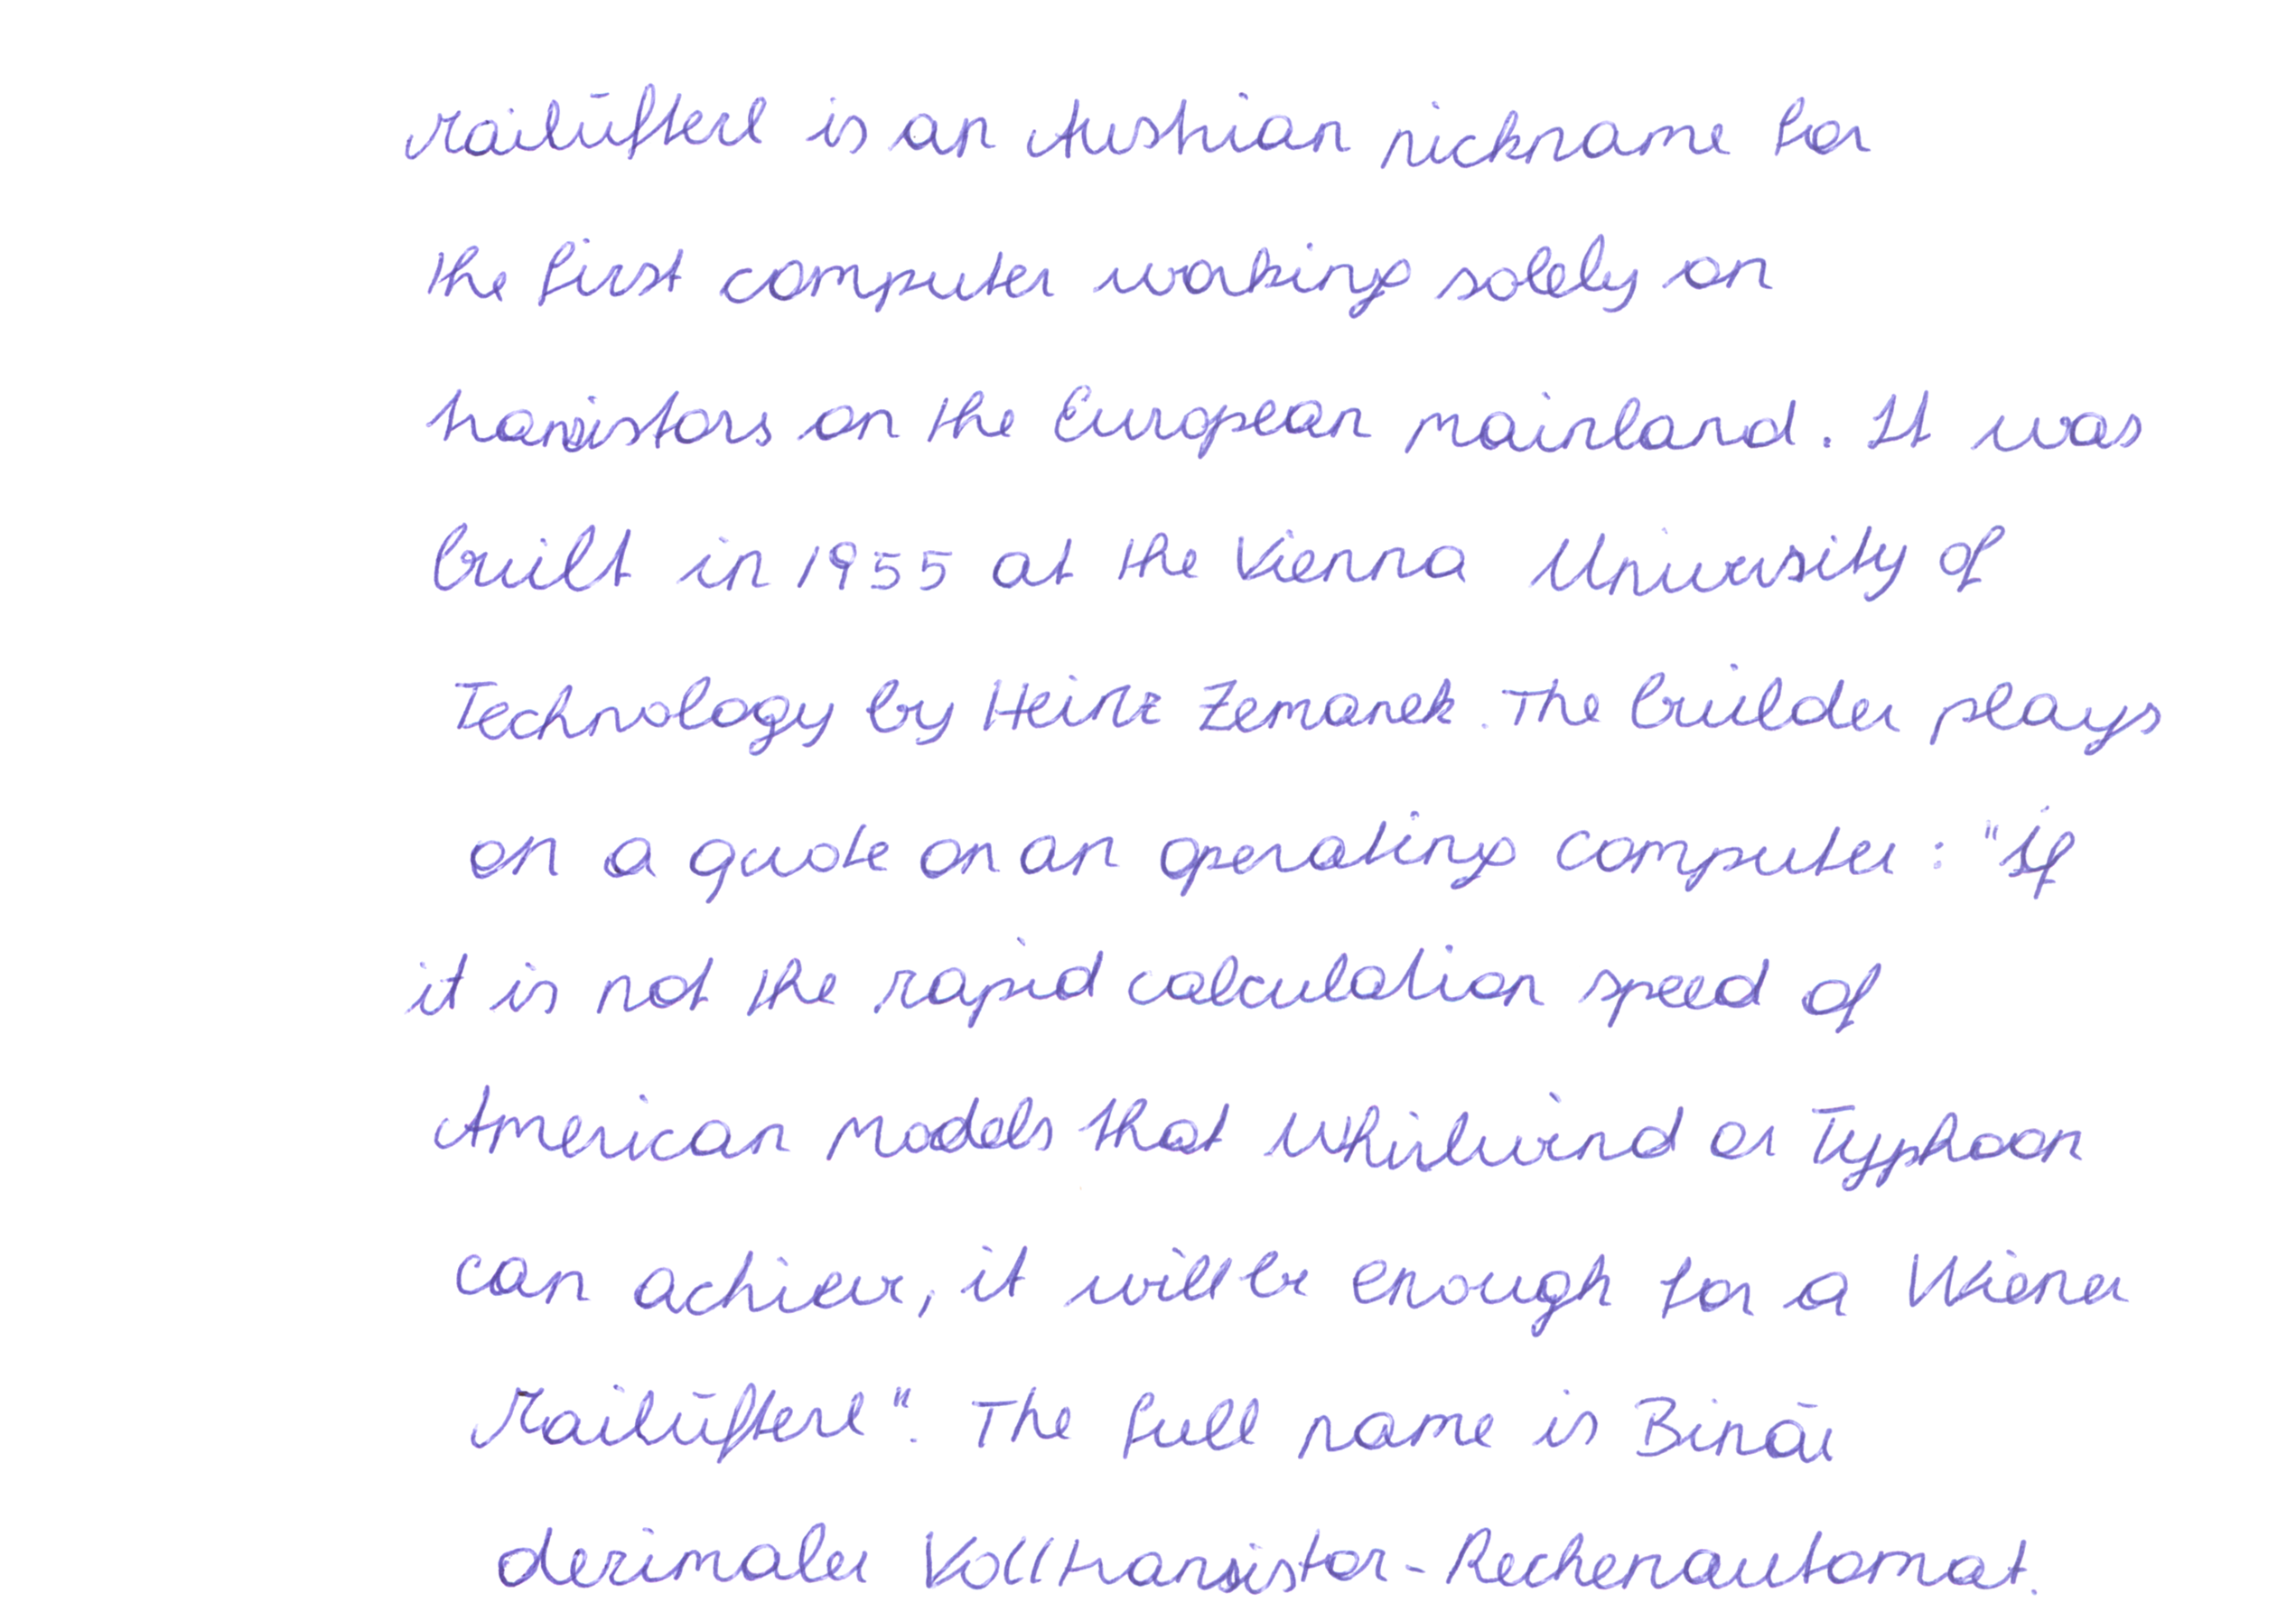 Mailüfterl is an Austrian nickname for
the first computer working solely on
transistors on the European mainland. It was
built in 1955 at the Vienna University of
Technology by Heinz Zemanek. The builder plays
on a quote on an operating computer: "If
it is not the rapid calculation speed of
American models that Whirlwind or Typhoon
can achieve, it will be enough for a Wiener
Mailüfterl". The full name is Binär
dezimaler Volltransistor-Rechenautomat.